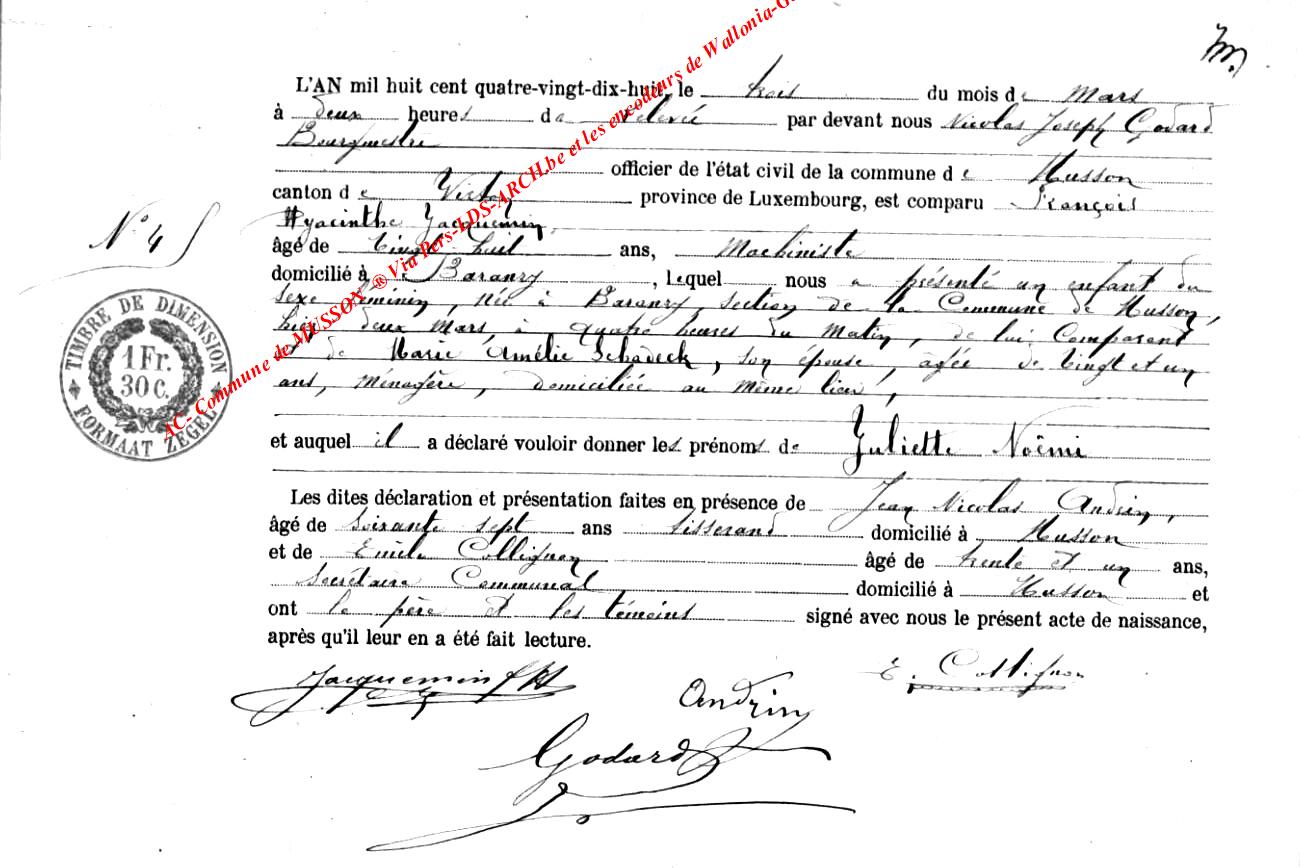 L'AN mil huit cent quatre-vingt-dix-huit, le trois du mois de Mars
à deux heures de relevée par devant nous Nicolas Joseph Godard
Bourgmestre
officier de l'état civil de la commune de Musson
canton de Virton province de Luxembourg, est comparu François
Hyacinthe Jacquemin,
âgé de vingt huit ans, Machiniste
domicilié à Baranzy, lequel nous a présenté un enfant du
sexe féminin, née à Baranzy, section de la Commune de Musson,
hier deux Mars, à quatre heures du matin, de lui Comparant
et de Marie Amélie Schadeck, son épouse, âgée de vingt et un
ans, ménagère, domiciliée au même lieu,
et auquel il a déclaré vouloir donner les prénoms de Juliette Noëmi
Les dites déclaration et présentation faites en présence de Jean Nicolas Andrin,
âgé de soixante sept ans tisserand domicilié à Musson
et de Emile Collignon âgé de trente et un ans,
Secrétaire Communal domicilié à Musson et
ont le père et les témoins signé avec nous le présent acte de naissance,
après qu'il leur en a été fait lecture.
Jacquemin
E. Collignon
Andrin
Godard
N° 4
TIMBRE DE DIMENSION
1 Fr.
30 C.
FORMAAT ZEGEL
AC- Commune de MUSSON ® Via Pers-LDS-ARCH.be et les encodeurs de Wallonia-G